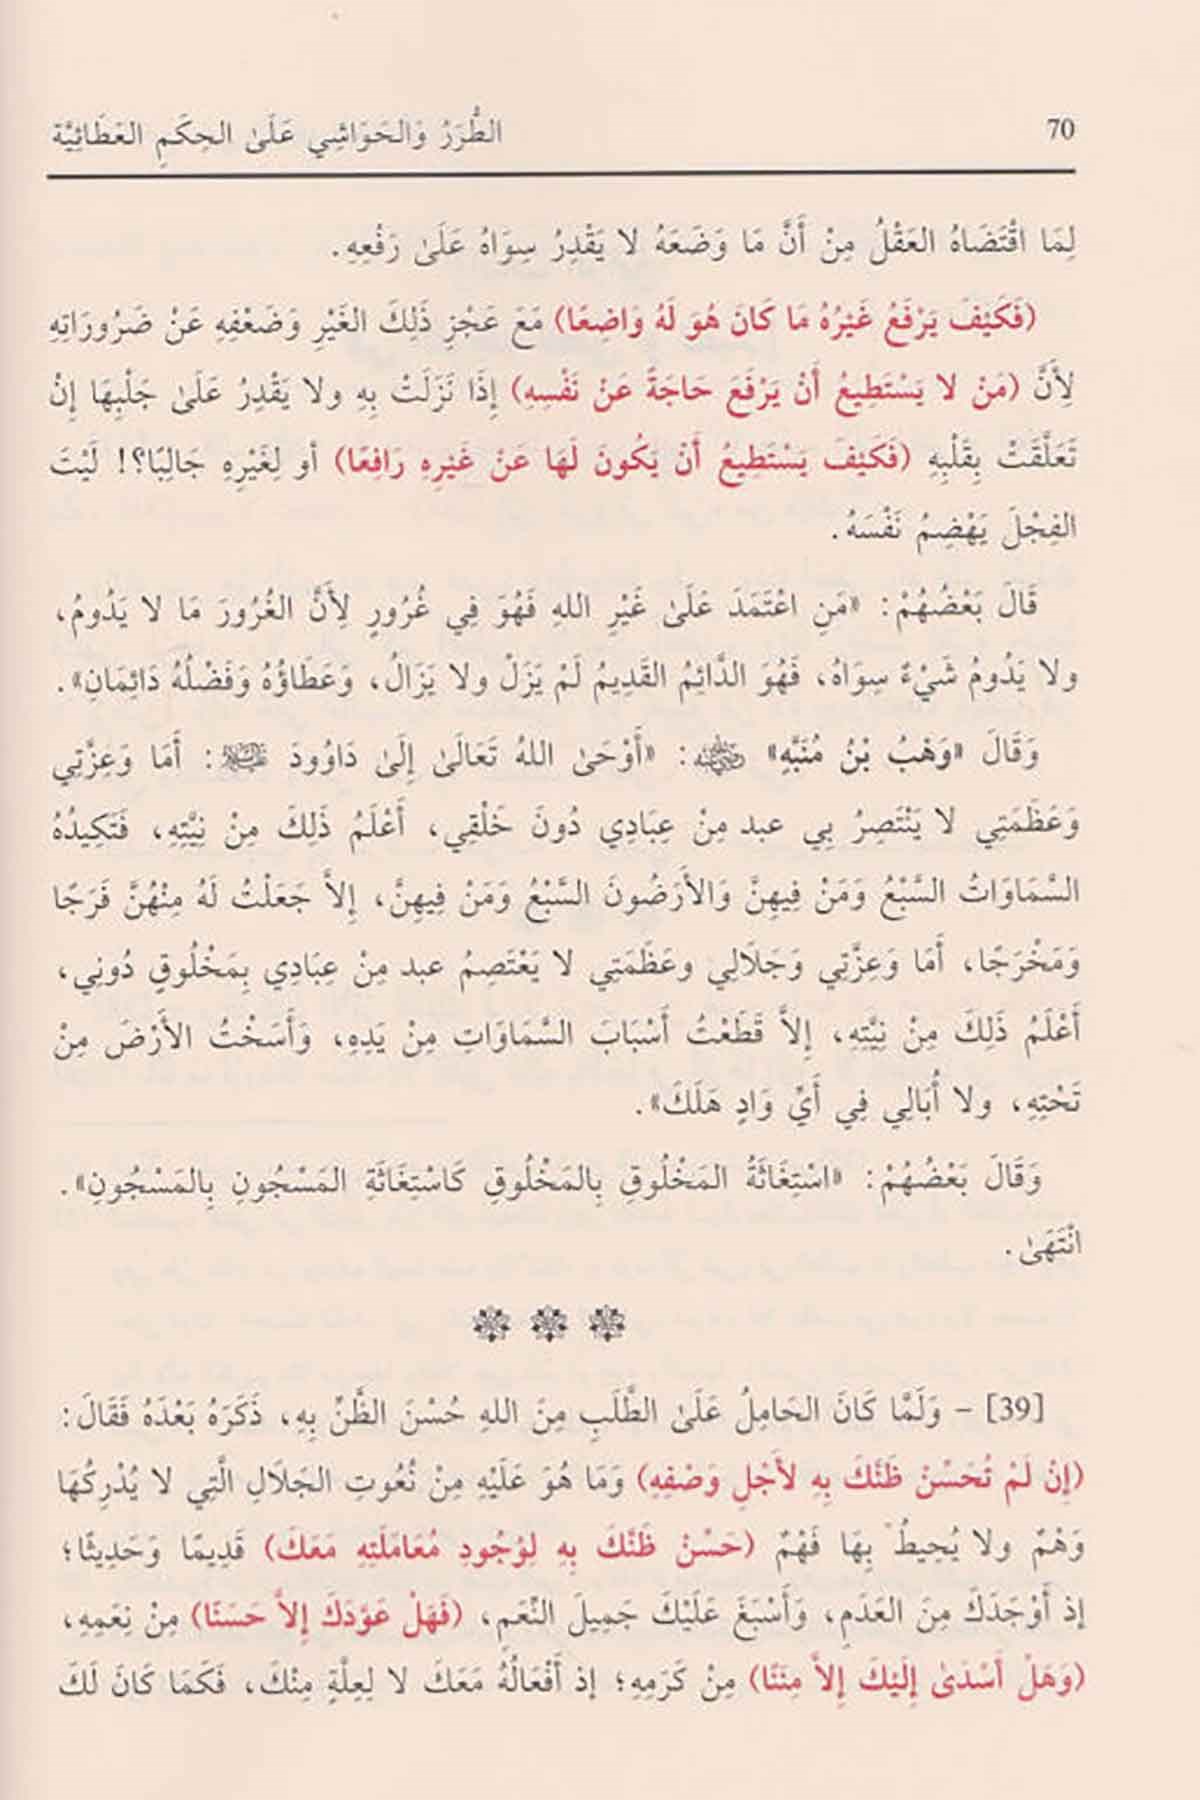 70
الطُّرَرُ وَالحَوَاشِي عَلَىٰ الحِكَمِ العَطَائِيَّة
لِمَا اقْتَضَاهُ العَقْلُ مِنْ أَنَّ مَا وَضَعَهُ لا يَقْدِرُ سِوَاهُ عَلَىٰ رَفْعِهِ.
(فَكَيْفَ يَرْفَعُ غَيْرُهُ مَا كَانَ هُوَ لَهُ وَاضِعًا) مَعَ عَجْزِ ذَلِكَ الغَيْرِ وَضَعْفِهِ عَنْ ضَرُورَاتِهِ
لِأَنَّ (مَنْ لا يَسْتَطِيعُ أَنْ يَرْفَعَ حَاجَةً عَنْ نَفْسِهِ) إِذَا نَزَلَتْ بِهِ ولا يَقْدِرُ عَلَىٰ جَلْبِهَا إِنْ
تَعَلَّقَتْ بِقَلْبِهِ (فَكَيْفَ يَسْتَطِيعُ أَنْ يَكُونَ لَهَا عَنْ غَيْرِهِ رَافِعًا) أو لِغَيْرِهِ جَالِبًا؟! لَيْتَ
الفِجْلَ يَهْضِمُ نَفْسَهُ.
قَالَ بَعْضُهُمْ: «مَنِ اعْتَمَدَ عَلَىٰ غَيْرِ اللهِ فَهُوَ فِي غُرُورٍ لِأَنَّ الغُرُورَ مَا لا يَدُومُ،
ولا يَدُومُ شَيْءٌ سِوَاهُ، فَهُوَ الدَّائِمُ القَدِيمُ لَمْ يَزَلْ ولا يَزَالُ، وَعَطَاؤُهُ وَفَضْلُهُ دَائِمَانِ».
وَقَالَ «وَهْبُ بْنُ مُنَبِّهٍ» رضي الله عنه: «أَوْحَىٰ اللهُ تَعَالَىٰ إِلَىٰ دَاوُودَ عليه السلام: أَمَا وَعِزَّتِي
وَعَظَمَتِي لا يَنْتَصِرُ بِي عبد مِنْ عِبَادِي دُونَ خَلْقِي، أَعْلَمُ ذَلِكَ مِنْ نِيَّتِهِ، فَتَكِيدُهُ
السَّمَاوَاتُ السَّبْعُ وَمَنْ فِيهِنَّ وَالأَرَضُونَ السَّبْعُ وَمَنْ فِيهِنَّ، إِلاَّ جَعَلْتُ لَهُ مِنْهُنَّ فَرَجًا
وَمَخْرَجًا، أَمَا وَعِزَّتِي وَجَلَالِي وعَظَمَتِي لا يَعْتَصِمُ عبد مِنْ عِبَادِي بِمَخْلُوقٍ دُونِي،
أَعْلَمُ ذَلِكَ مِنْ نِيَّتِهِ، إِلاَّ قَطَعْتُ أَسْبَابَ السَّمَاوَاتِ مِنْ يَدِهِ، وَأَسَخْتُ الأَرْضَ مِنْ
تَحْتِهِ، ولا أُبَالِي فِي أَيِّ وَادٍ هَلَكَ».
وَقَالَ بَعْضُهُمْ: «اسْتِغَاثَةُ المَخْلُوقِ بِالمَخْلُوقِ كَاسْتِغَاثَةِ المَسْجُونِ بِالمَسْجُونِ».
انْتَهَىٰ.
[39] – وَلَمَّا كَانَ الحَامِلُ عَلَىٰ الطَّلَبِ مِنَ اللهِ حُسْنَ الظَّنِّ بِهِ، ذَكَرَهُ بَعْدَهُ فَقَالَ:
(إِنْ لَمْ تُحَسِّنْ ظَنَّكَ بِهِ لأَجْلِ وَصْفِهِ) وَمَا هُوَ عَلَيْهِ مِنْ نُعُوتِ الجَلَالِ الَّتِي لا يُدْرِكُهَا
وَهْمٌ ولا يُحِيطُ بِهَا فَهْمٌ (حَسِّنْ ظَنَّكَ بِهِ لِوُجُودِ مُعَامَلَتِهِ مَعَكَ) قَدِيمًا وَحَدِيثًا؛
إذ أَوْجَدَكَ مِنَ العَدَمِ، وَأَسْبَغَ عَلَيْكَ جَمِيلَ النِّعَمِ، (فَهَلْ عَوَّدَكَ إِلاَّ حَسَنًا) مِنْ نِعَمِهِ،
(وَهَلْ أَسْدَىٰ إِلَيْكَ إِلاَّ مِنَنًا) مِنْ كَرَمِهِ؛ إذ أَفْعَالُهُ مَعَكَ لا لِعِلَّةٍ مِنْكَ، فَكَمَا كَانَ لَكَ